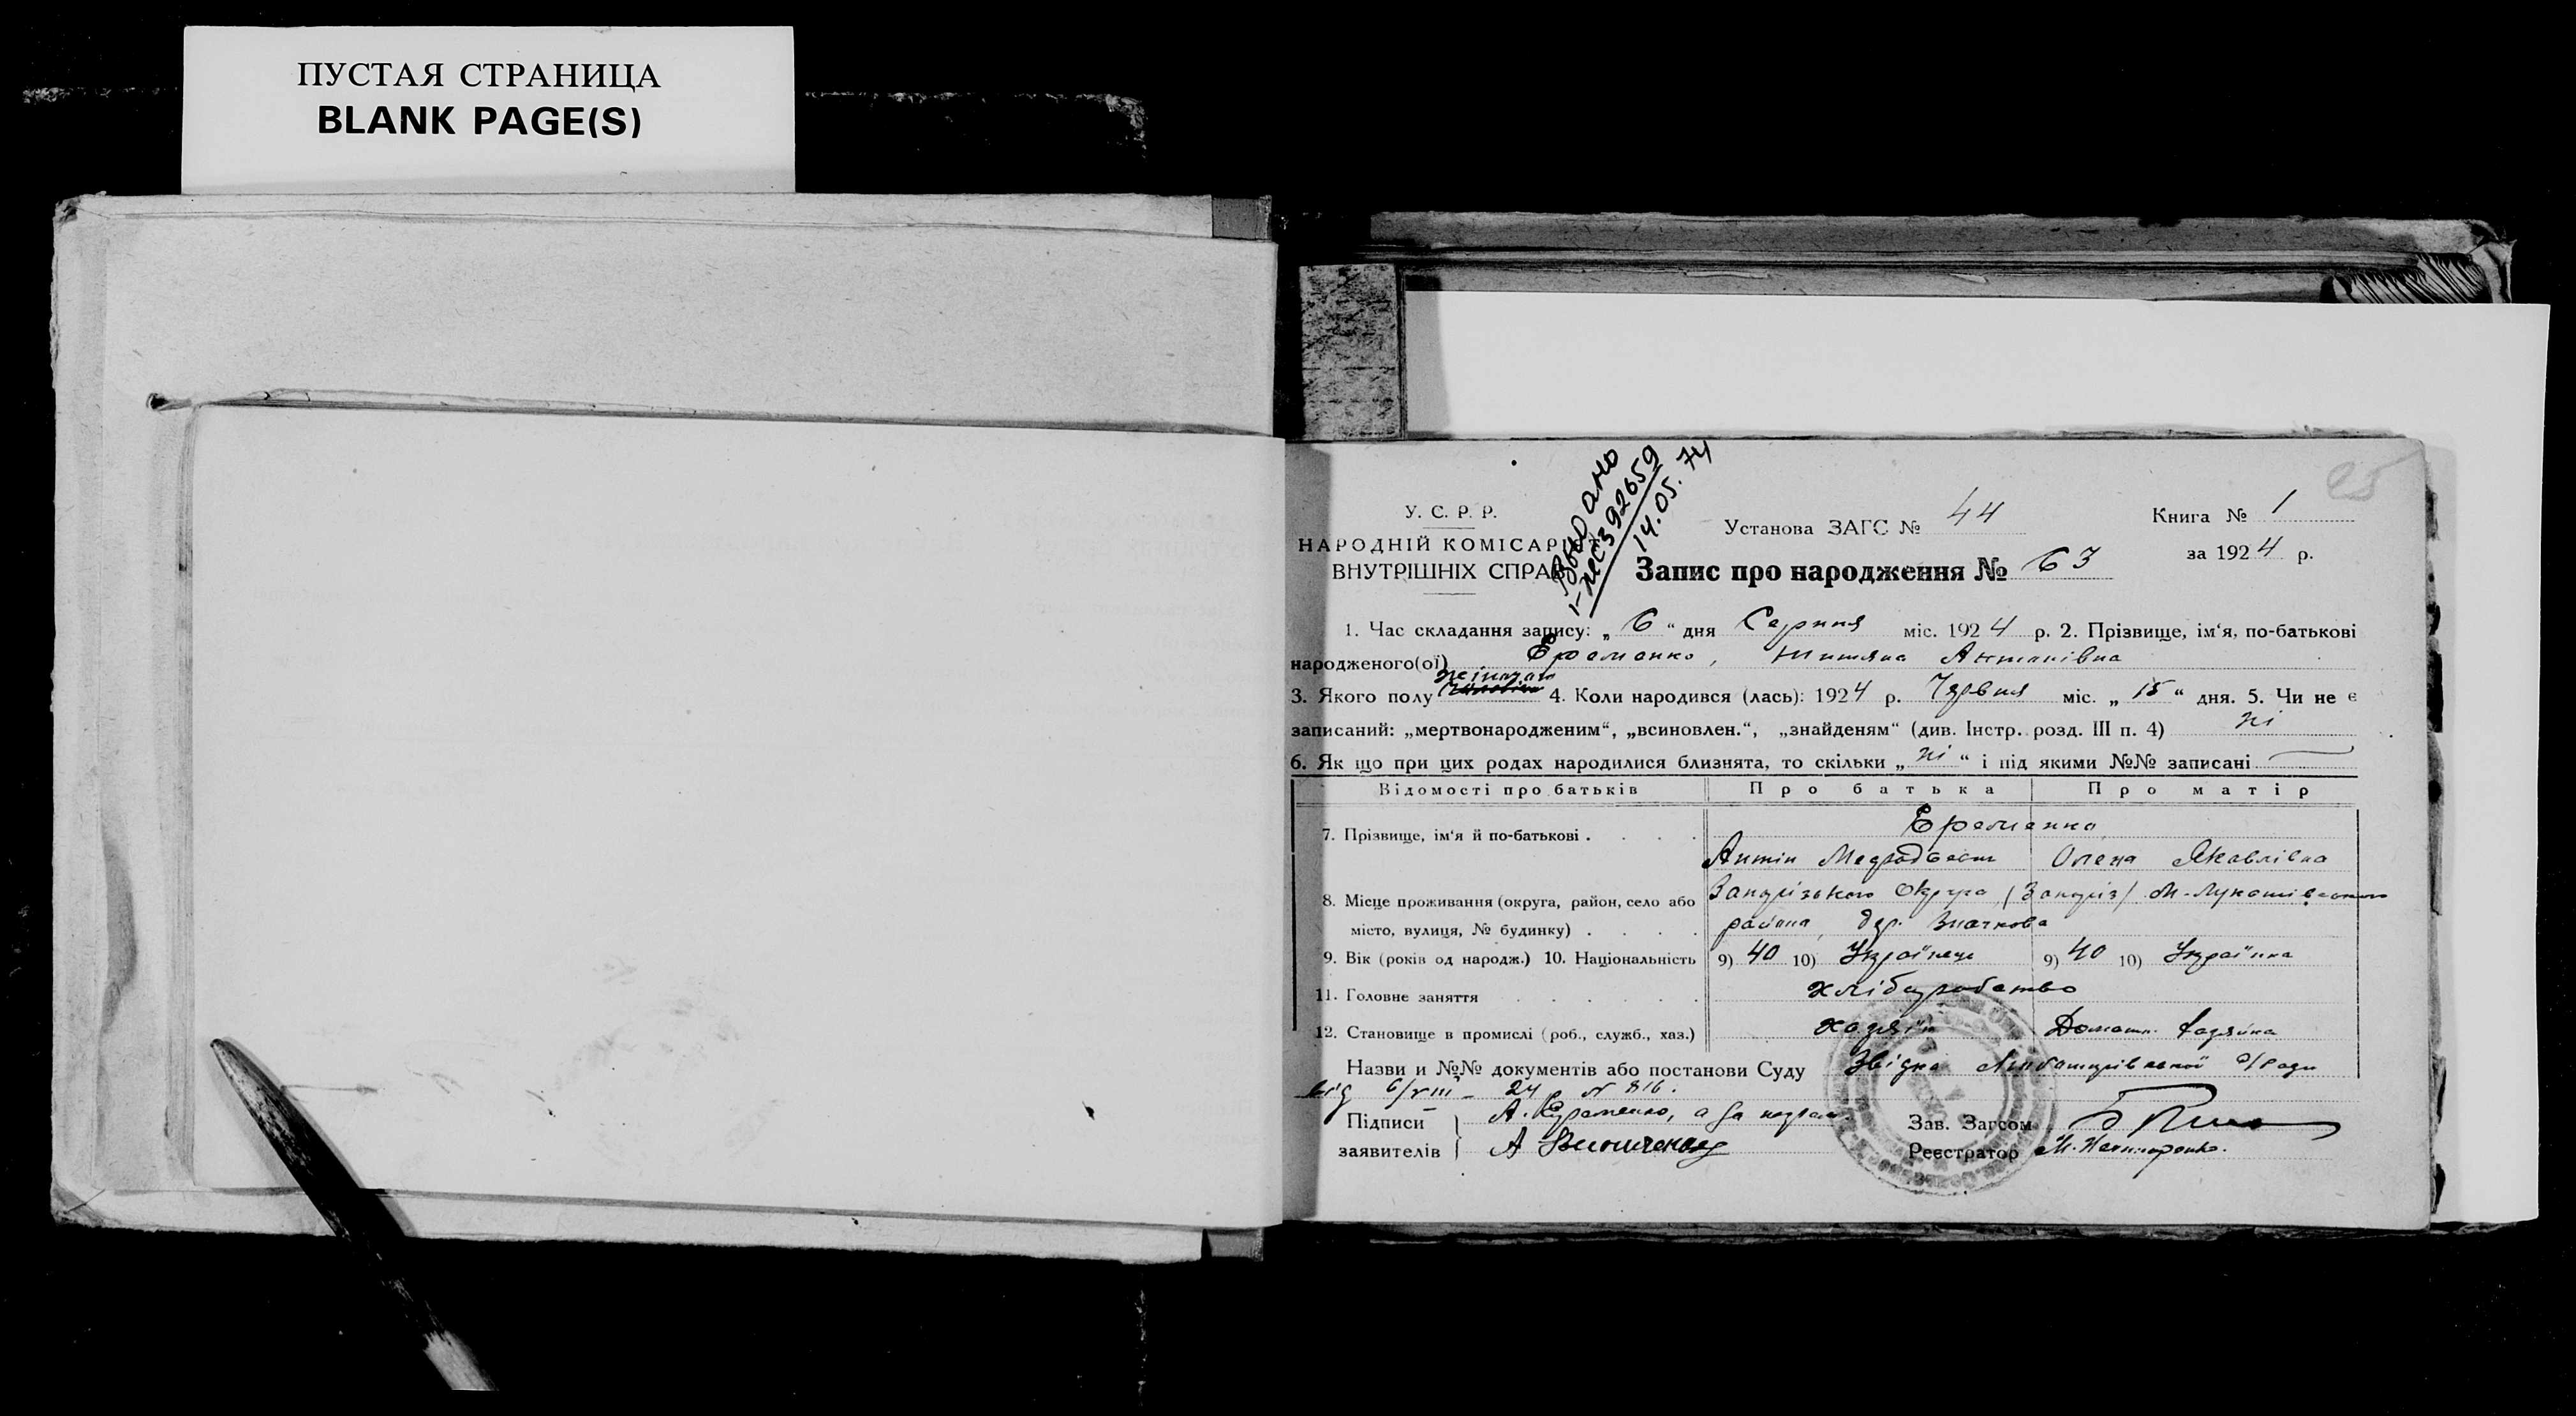 ПУСТАЯ СТРАНИЦА
BLANK PAGE(S)
25
Выдано
392659
14.05.74
У. С. Р. Р.
НАРОДНІЙ КОМІСАРІЯТ
ВНУТРІШНІХ СПРАВ
Установа ЗАГС № 44
Книга № 1
за 1924 р.
Запис про народження № 63
1. Час складання запису: „ 6 “ дня Серпня міс. 1924 р. 2. Прізвище, ім'я, по-батькові
народженого(ої) Єременко, Антонівна
3. Якого полу жіночого 4. Коли народився (лась): 1924 р. Червня міс. „ 15 “ дня. 5. Чи не є
записаний: „мертвонародженим“, „всиновлен.“, „знайденям“ (див. Інстр. розд. III п. 4) ні
6. Як що при цих родах народилися близнята, то скільки „ ні “ і під якими №№ записані
Відомості про батьків Про батька Про матір
7. Прізвище, ім'я й по-батькові . . . . Єременко
Антін Олена Яковлівна
8. Місце проживання (округа, район, село або Запорізького Округа
місто, вулиця, № будинку) . . . . района, дер.
9. Вік (років од народж.) 10. Національність 9) 40 10) Українець 9) 40 10) Українка
11. Головне заняття . . . . . хліборобство
12. Становище в промислі (роб., служб., хаз.) хазяїн Домашн. хазяйка
Назви и №№ документів або постанови Суду
від 6/VIII - 24 р N 816.
Підписи А. Єременко, а за
заявителів А
Зав. Загсом
Реєстратор М.